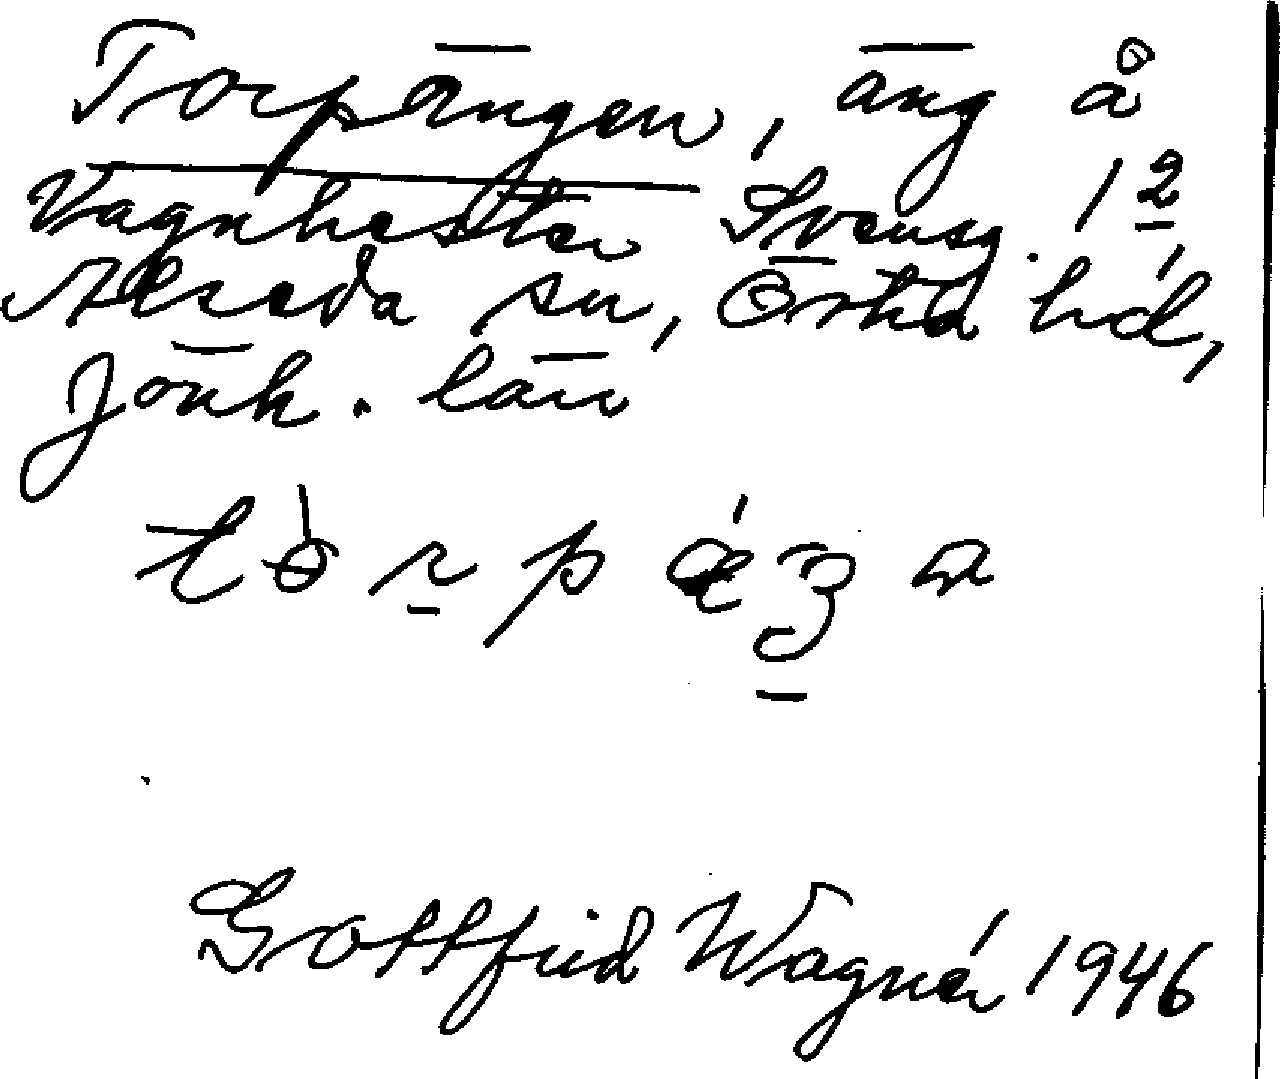 Torpängen, äng å
Vagnhester Svensg. 1 2,
Alseda sn, Östra hd,
Jönk. län
Gottfrid Wagnér 1946